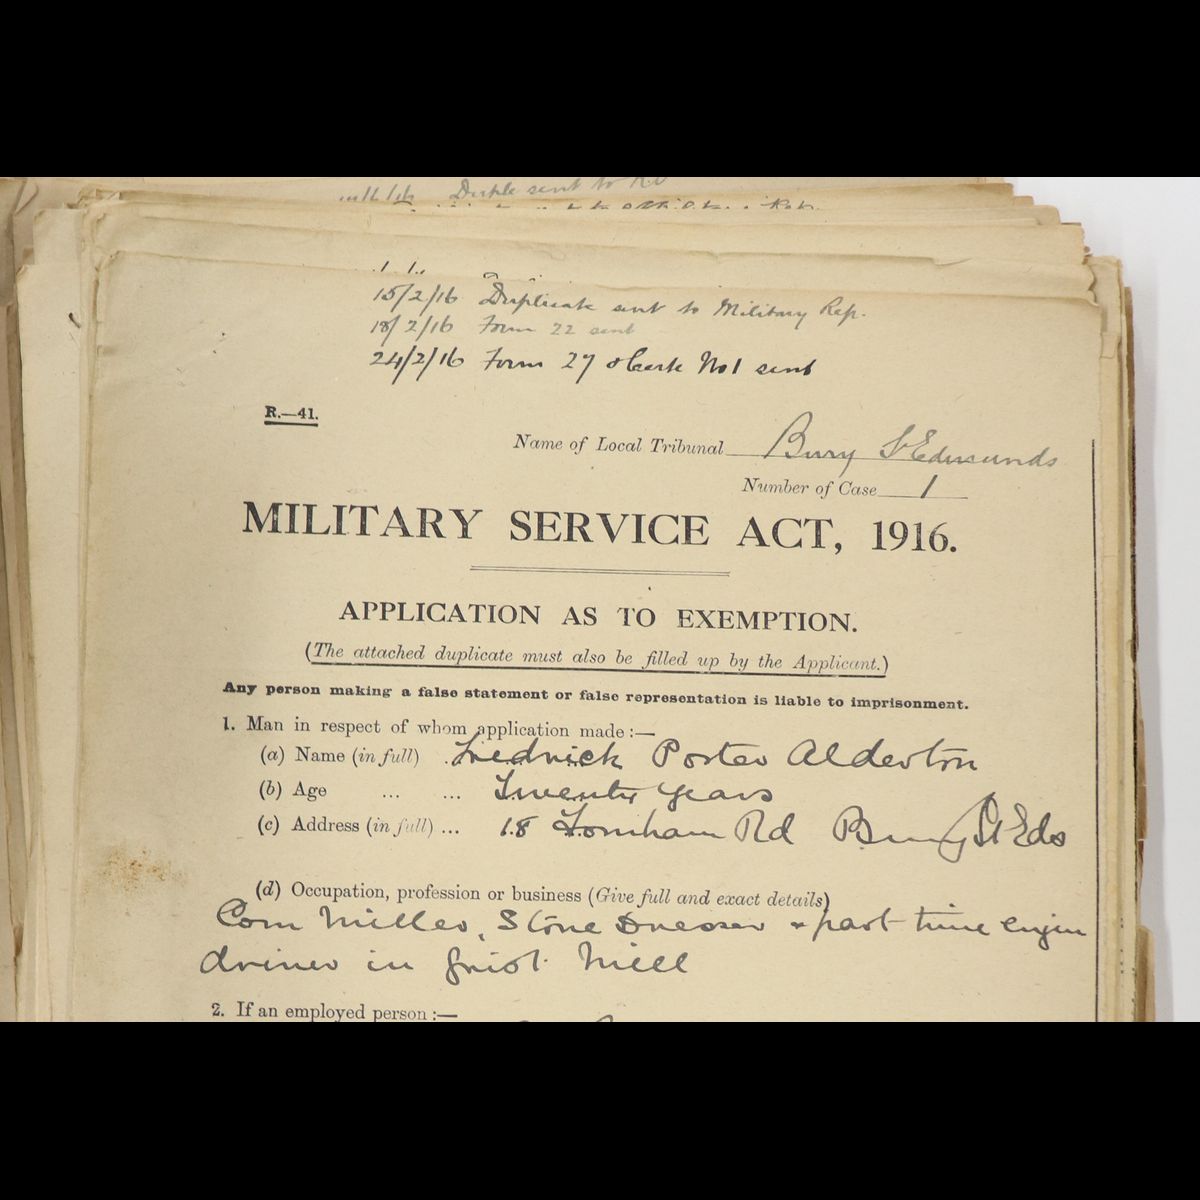 Duple sent to
15/2/16 Duplicate sent to Military Rep.
18/2/16 Form 22 sent
24/2/16 Form 27 & Card No 1 sent
R.—41.
Name of Local Tribunal Bury St Edmunds
Number of Case 1
MILITARY SERVICE ACT, 1916.
APPLICATION AS TO EXEMPTION.
(The attached duplicate must also be filled up by the Applicant.)
Any person making a false statement or false representation is liable to imprisonment.
1. Man in respect of whom application made :—
(a) Name (in full) Fredrick Porter Alderton
(b) Age ... ... Twenty years
(c) Address (in full) ... 18 Fornham Rd Bury St Eds
(d) Occupation, profession or business (Give full and exact details)
Corn Miller, Stone Dresser & part time engin
driver in Grist Mill
2. If an employed person :—